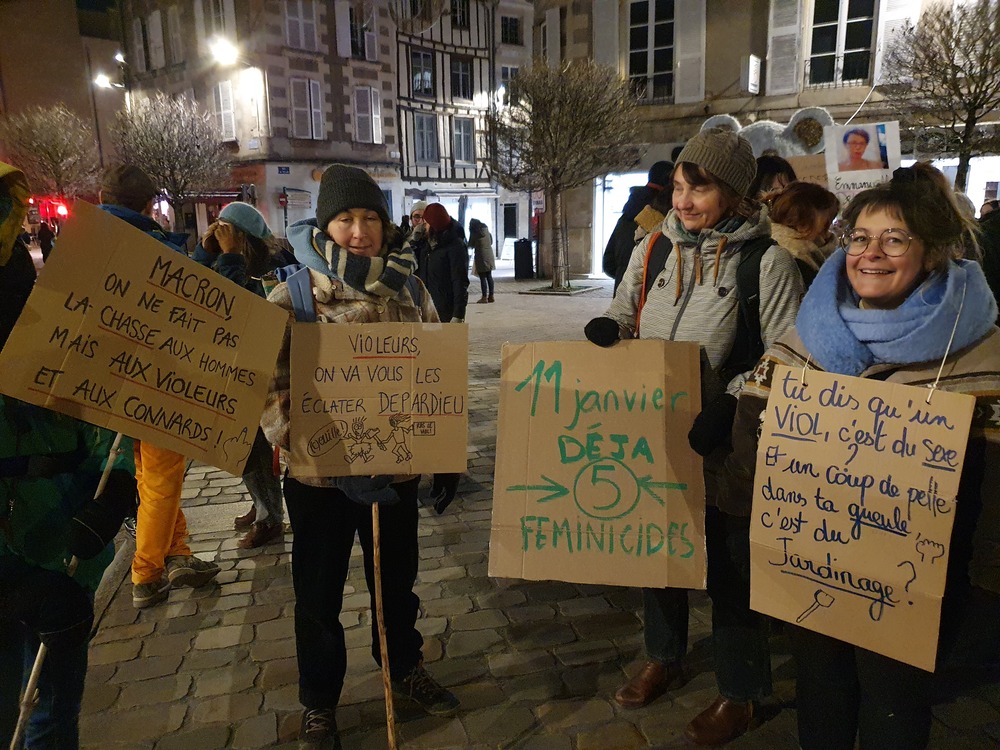 MACRON,
ON NE FAIT PAS
LA CHASSE AUX HOMMES
MAIS AUX VIOLEURS
ET AUX CONNARDS !
VIOLEURS,
ON VA VOUS LES
ÉCLATER DEPARDIEU
11 janvier
DÉJA
5
FEMINICIDES
tu dis qu'un
VIOL, c'est du sexe
Et un coup de pelle
dans ta gueule
c'est du
Jardinage ?